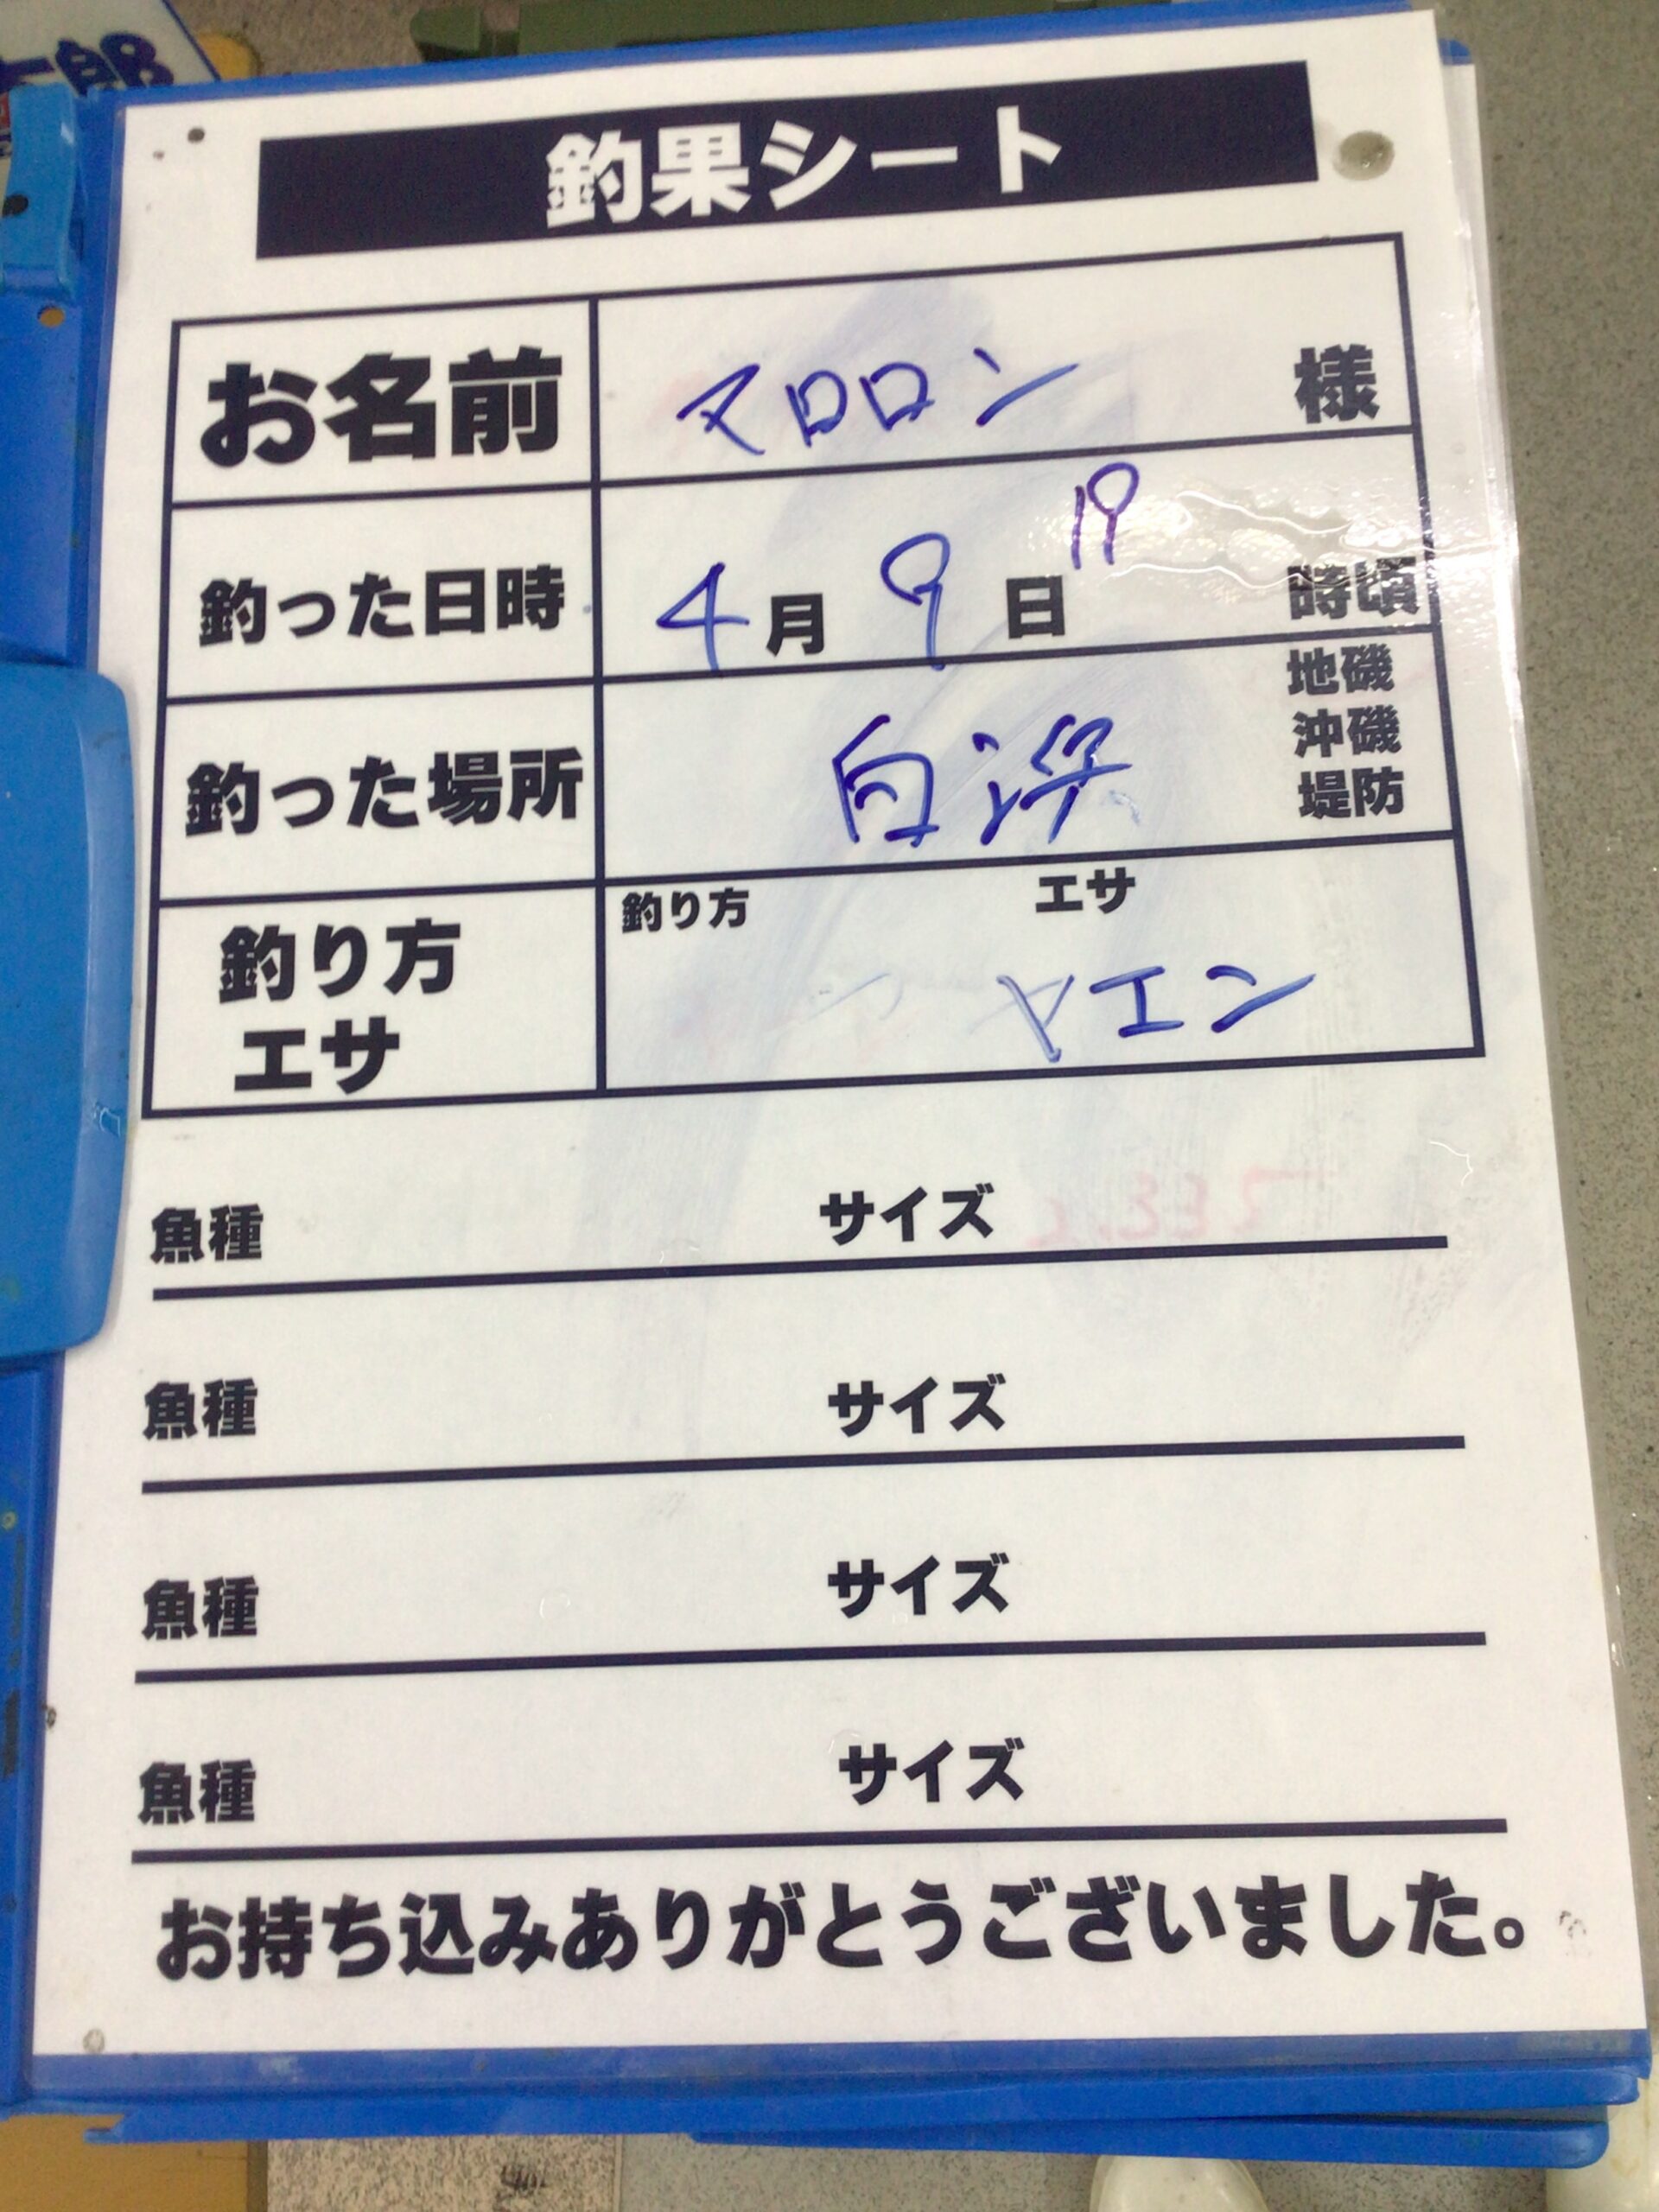 郎
釣果シート
お名前 マロロン 様
釣った日時 4月9日19時頃
釣った場所 白浜 地磯
沖磯
堤防
釣り方 エサ
釣り方 エサ
ヤエン
魚種 サイズ
魚種 サイズ
魚種 サイズ
魚種 サイズ
お持ち込みありがとうございました。